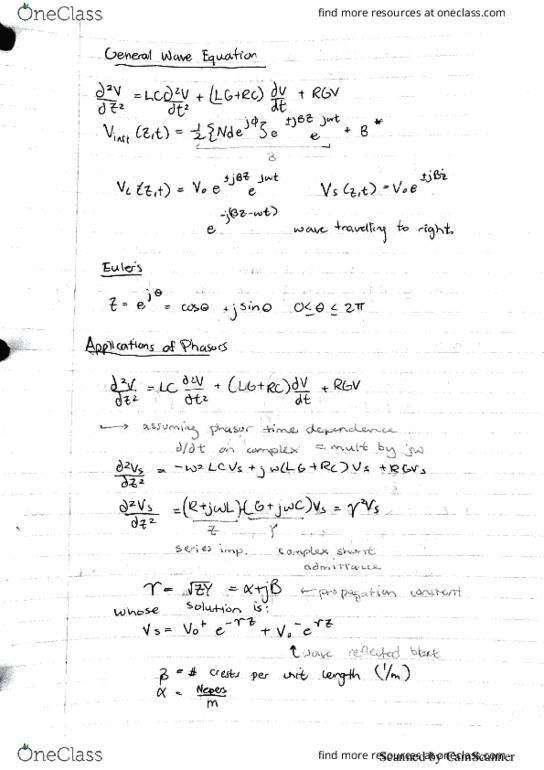 OneClass
find more resources at oneclass.com
General Wave Equation
∂²V/∂z² = LC ∂²V/∂t² + (LG+RC) dV/dt + RGV
V_inst (z,t) = ½{N de^{jφ}}e^{±jβz} e^{jwt} + B*
B
V_c(z,t) = V₀ e^{±jβz} e^{jwt}     V_s(z,t) = V₀e^{±jβz}
e^{-j(βz-wt)}     wave travelling to right.
Euler's
z = e^{jθ} = cosθ + jsinθ   0≤θ≤2π
Applications of Phasors
∂²V/∂z² = LC ∂²V/∂t² + (LG+RC) dV/dt + RGV
↪ assuming phasor time dependence
d/dt on complex = mult by jw
∂²Vs/∂z² = -w²LCVs + jw(LG+RC)Vs + RGVs
∂²Vs/∂z² = (R+jwL)(G+jwC)Vs = γ²Vs
Z   Y
series imp.   complex shunt
admittance
γ = √ZY = α+jβ ← propagation constant
whose solution is:
Vs = V₀⁺ e^{-γz} + V₀⁻ e^{γz}
↑ wave reflected back
β = # crests per unit length (1/m)
α = Nepers/m
OneClass
find more resources at oneclass.com
Scanned by CamScanner